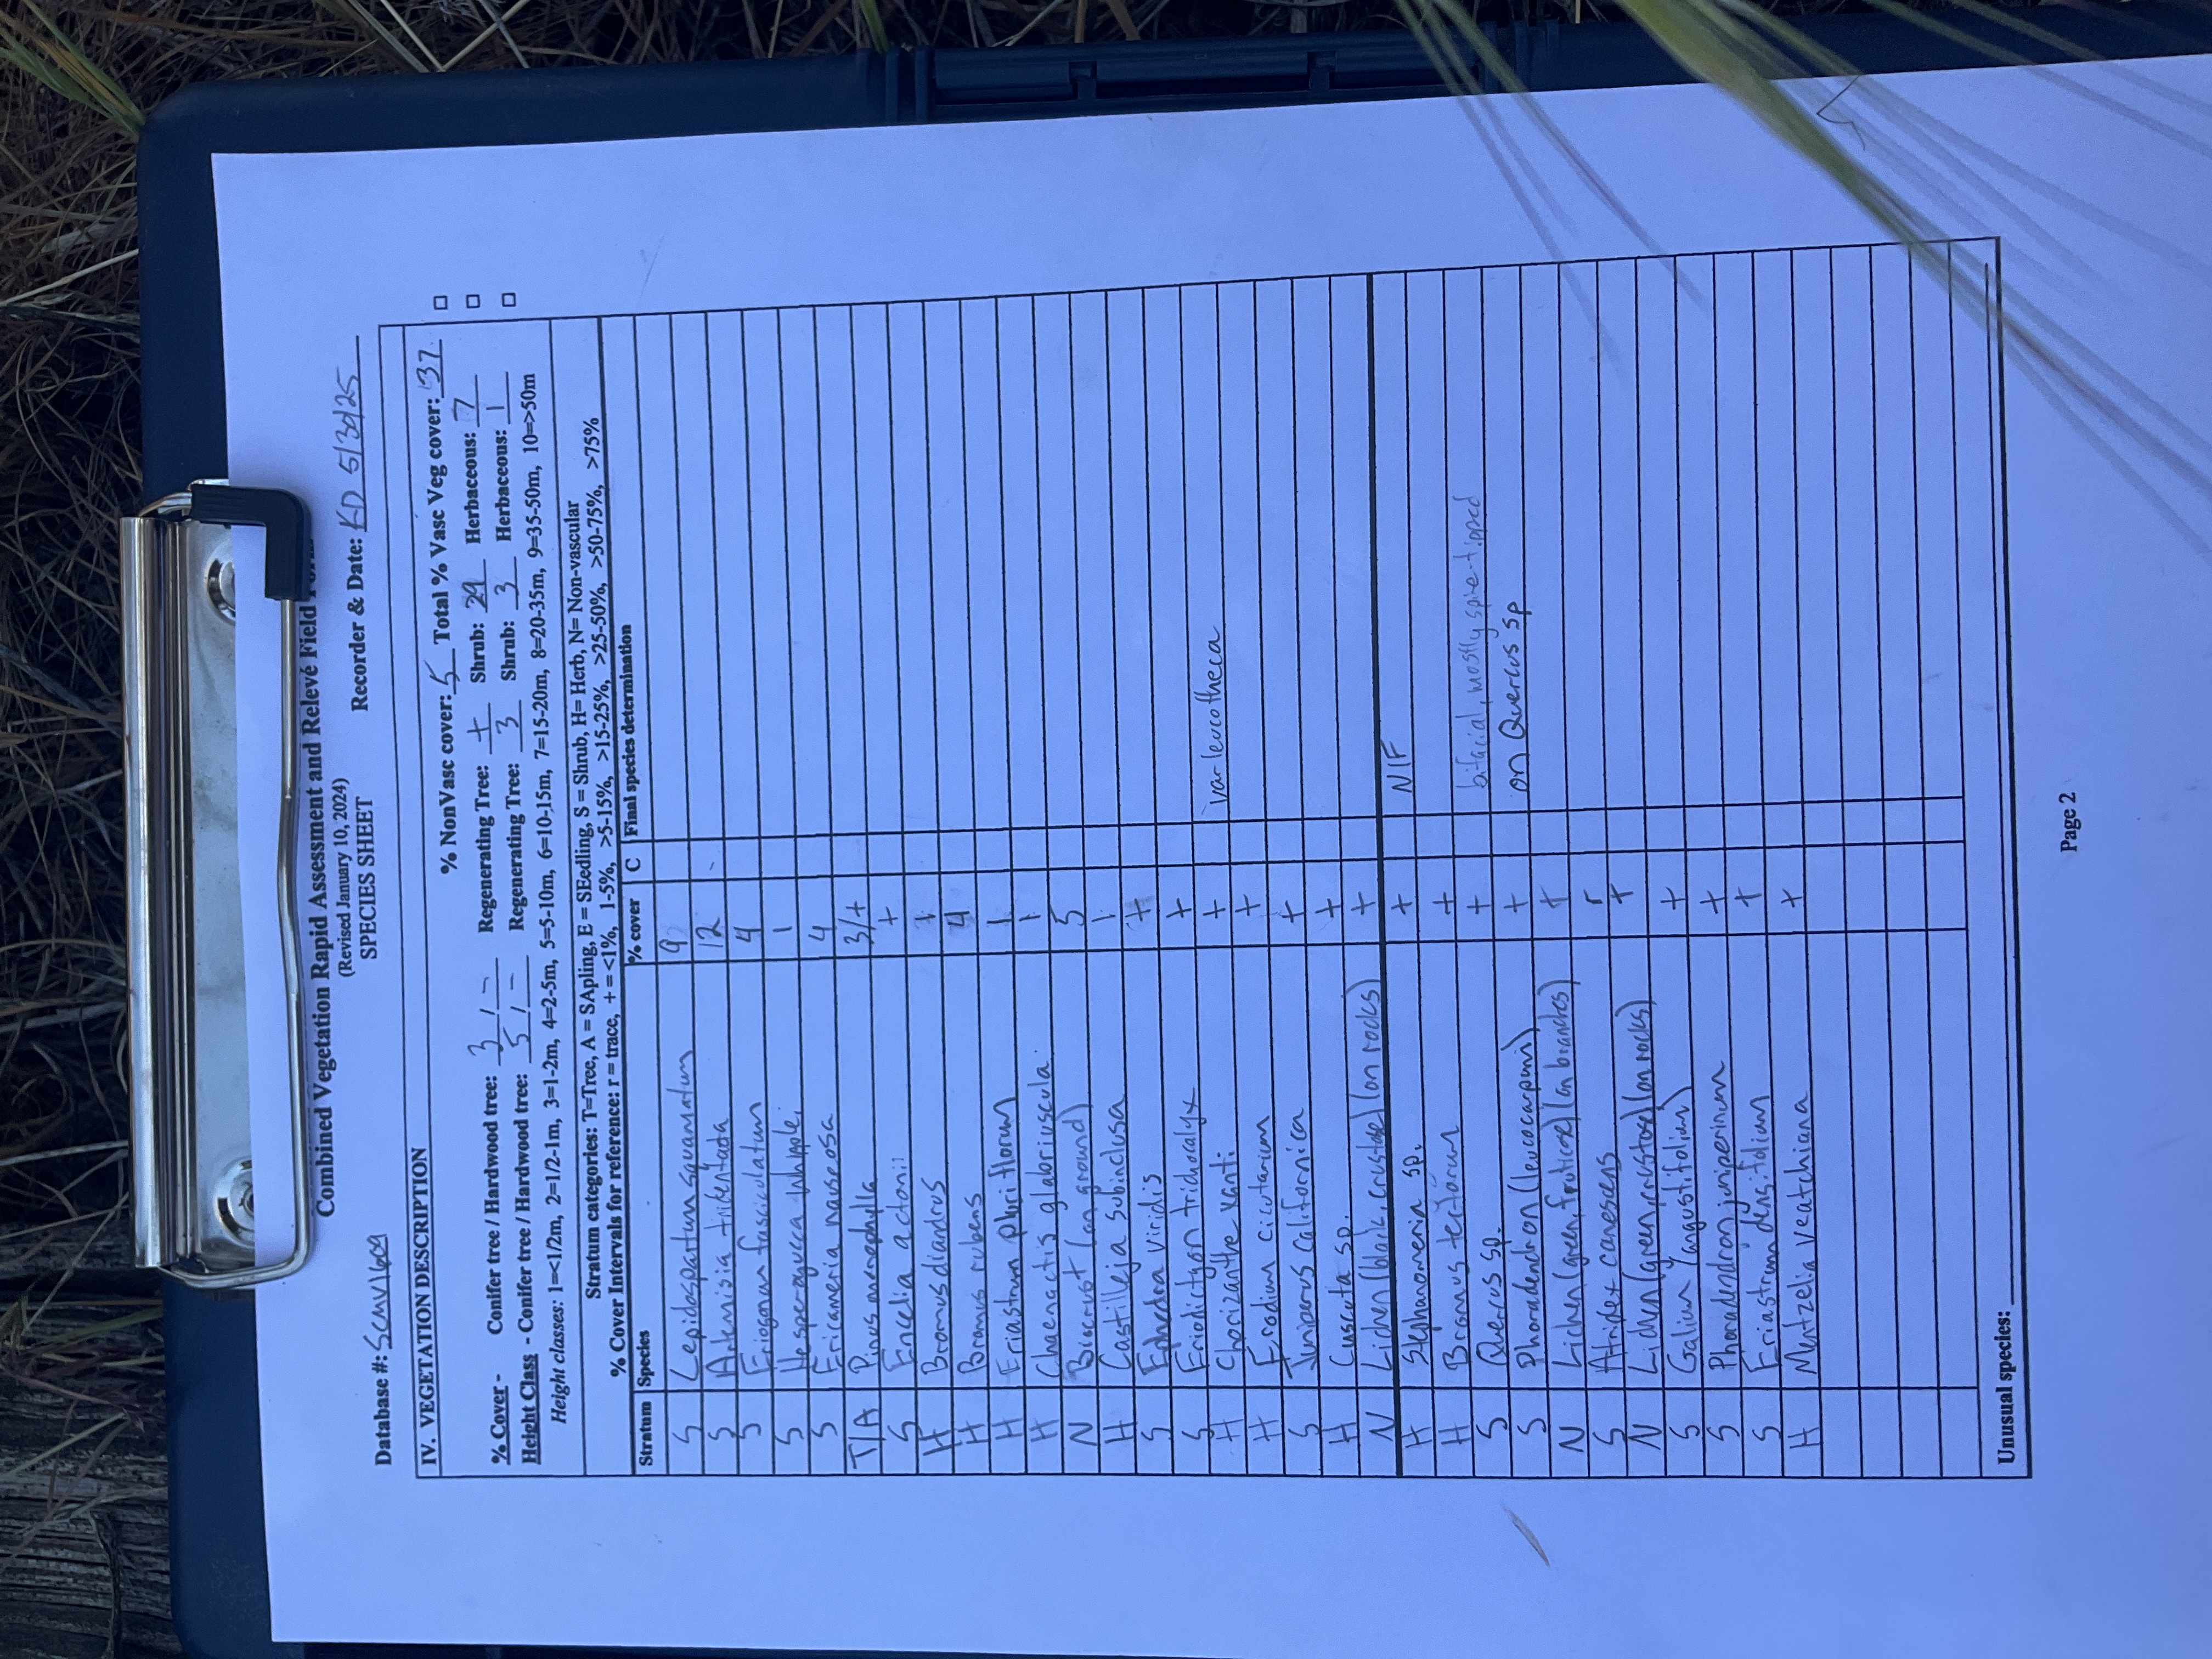 Combined Vegetation Rapid Assessment and Relevé Field
(Revised January 10, 2024)
SPECIES SHEET
Database #: SCMV1609 Recorder & Date: KD 5/30/25
IV. VEGETATION DESCRIPTION
% NonVasc cover: 5 Total % Vasc Veg cover: 37
% Cover - Conifer tree / Hardwood tree: 3 / - Regenerating Tree: + Shrub: 29 Herbaceous: 7
Height Class - Conifer tree / Hardwood tree: 5 / - Regenerating Tree: 3 Shrub: 3 Herbaceous: 1
Height classes: 1=<1/2m, 2=1/2-1m, 3=1-2m, 4=2-5m, 5=5-10m, 6=10-15m, 7=15-20m, 8=20-35m, 9=35-50m, 10=>50m
Stratum categories: T=Tree, A = SApling, E = SEedling, S = Shrub, H= Herb, N= Non-vascular
% Cover Intervals for reference: r = trace, + = <1%, 1-5%, >5-15%, >15-25%, >25-50%, >50-75%, >75%
Stratum Species % cover C Final species determination
S Lepidospartum squamatum 9
S Artemisia tridentata 12
S Eriogonum fasciculatum 4
S Hesperoyucca whipplei 1
S Ericameria nauseosa 4
T/A Pinus monophylla 3/+
S Encelia actonii +
H Bromus diandrus 1
H Bromus rubens 4
H Eriastrum pluriflorum 1
H Chaenactis glabriuscula 1
N Biocrust (on ground) 5
H Castilleja subinclusa 1
S Ephedra viridis +
S Eriodictyon trichocalyx +
H Chorizanthe xanti + var leucotheca
H Erodium cicutarium +
S Juniperus californica +
H Cuscuta sp. +
N Lichen (black, crustose) (on rocks) +
H Stephanomeria sp. + NIF
H Bromus tectorum +
S Quercus sp. + bifacial, mostly spine-tipped
S Phoradendron (leucocarpum) + on Quercus sp
N Lichen (green, fruticose) (on branches) +
S Atriplex canescens r
N Lichen (green, crustose) (on rocks) +
S Galium (angustifolium) +
S Phoradendron juniperinum +
S Eriastrum densifolium +
H Mentzelia veatchiana +
Unusual species:
Page 2